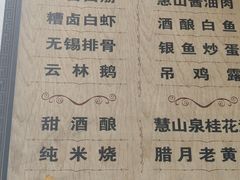 糟卤白虾
无锡排骨
云林鹅
甜酒酿
纯米烧
慧山酱油肉
酒酿白鱼
银鱼炒蛋
吊鸡露
慧山泉桂花
腊月老黄